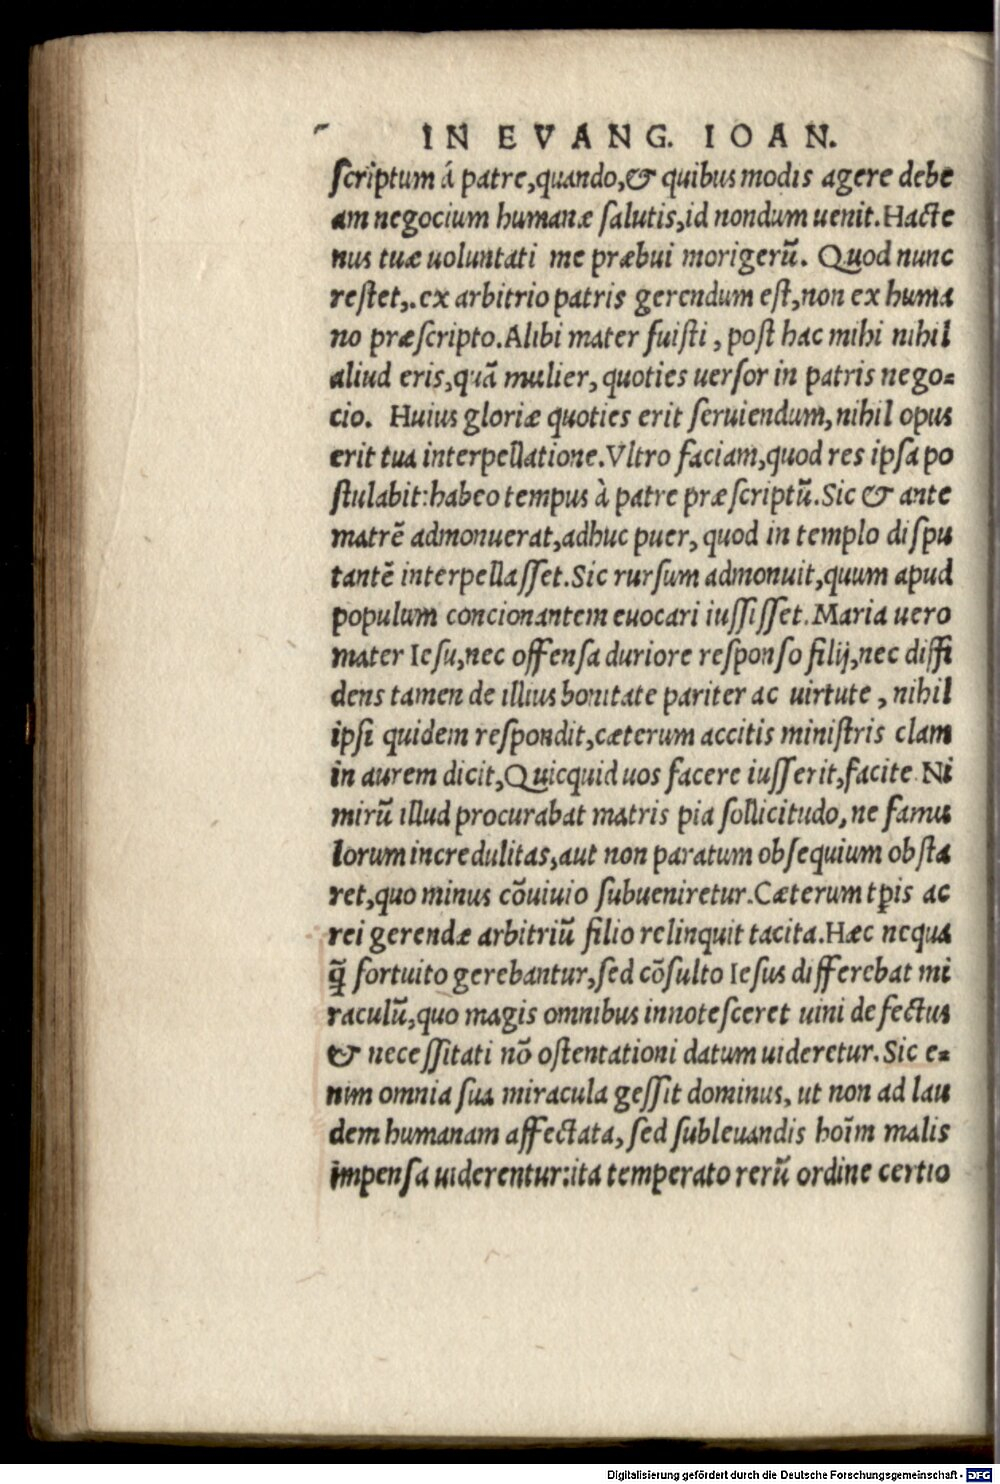 IN EVANG. IOAN.
scriptum á patre, quando, & quibus modis agere debe
am negocium humanæ salutis, id nondum uenit. Hacte
nus tuæ uoluntati me præbui morigerũ. Quod nunc
restet,. ex arbitrio patris gerendum est, non ex huma
no præscripto. Alibi mater fuisti, post hac mihi nihil
aliud eris, quã mulier, quoties uersor in patris nego=
cio. Huius gloriæ quoties erit seruiendum, nihil opus
erit tua interpellatione. Vltro faciam, quod res ipsa po
stulabit: habeo tempus à patre præscriptũ. Sic & ante
matrẽ admonuerat, adhuc puer, quod in templo dispu
tantẽ interpellasset. Sic rursum admonuit, quum apud
populum concionantem euocari iussisset. Maria uero
mater Iesu, nec offensa duriore responso filij, nec diffi
dens tamen de illius bonitate pariter ac uirtute, nihil
ipsi quidem respondit, cæterum accitis ministris clam
in aurem dicit, Quicquid uos facere iusserit, facite Ni
mirũ illud procurabat matris pia sollicitudo, ne famu
lorum incredulitas, aut non paratum obsequium obsta
ret, quo minus cõuiuio subueniretur. Cæterum tp̃is ac
rei gerendæ arbitriũ filio relinquit tacita. Hæc nequa
ꝗ̃ fortuito gerebantur, sed cõsulto Iesus differebat mi
raculũ, quo magis omnibus innotesceret uini defectus
& necessitati nõ ostentationi datum uideretur. Sic e=
nim omnia sua miracula gessit dominus, ut non ad lau
dem humanam affectata, sed subleuandis hoĩm malis
impensa uiderentur: ita temperato rerũ ordine certio
Digitalisierung gefördert durch die Deutsche Forschungsgemeinschaft - DFG